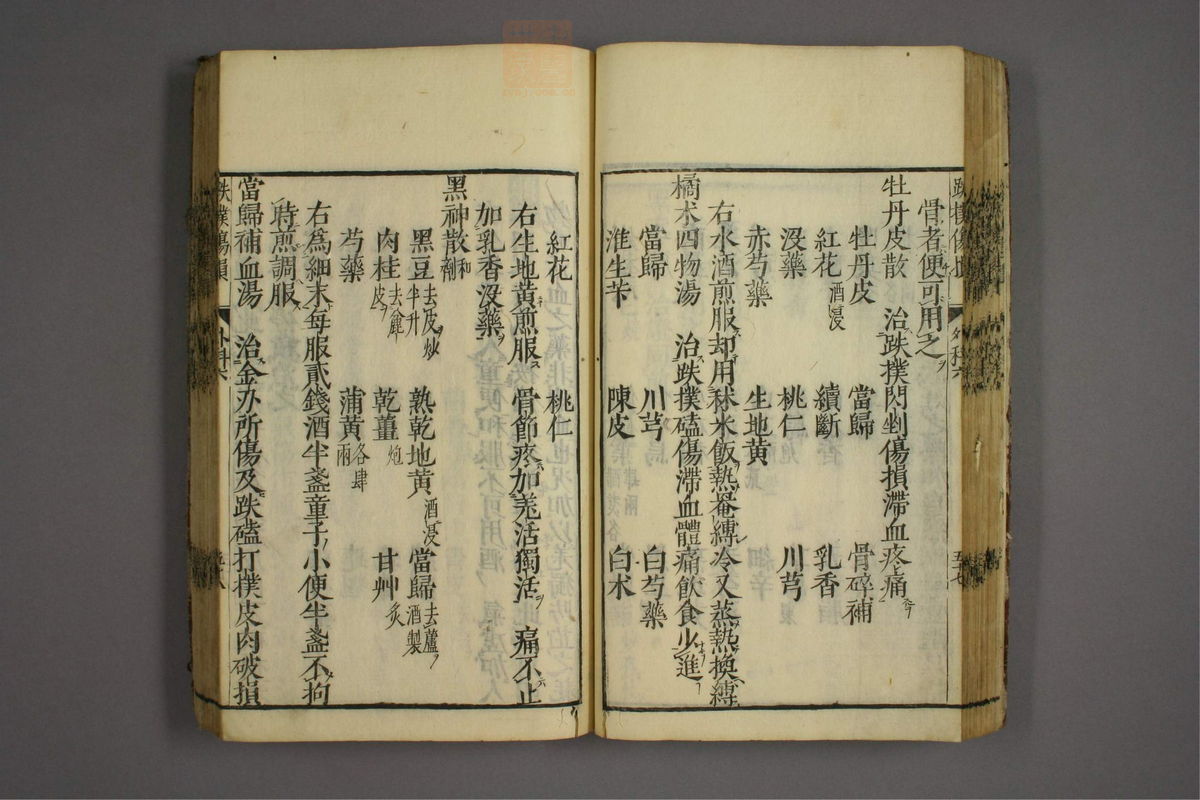 骨者便可用之
牡丹皮散　治跌撲閃剉傷損滯血疼痛
牡丹皮　當歸　骨碎補
紅花酒浸　續斷　乳香
沒藥　桃仁　川芎
赤芍藥　生地黃
右水酒煎服却用秫米飯熱罨縛冷又蒸熱換縛
橘朮四物湯　治跌撲磕傷滯血體痛飲食少進
當歸　川芎　白芍藥
淮生芐　陳皮　白朮
紅花　桃仁
右生地黃煎服骨節疼加羗活獨活　痛不止
加乳香沒藥
黑神散和劑
黑豆去皮炒半升　熟乾地黃酒浸　當歸去蘆酒製
肉桂去麄皮　乾薑炮　甘艸炙
芍藥　蒲黃各肆兩
右為細末每服貳錢酒半盞童子小便半盞不拘
時煎調服
當歸補血湯　治金刃所傷及跌磕打撲皮肉破損
跌撲傷損　外科六　五十八